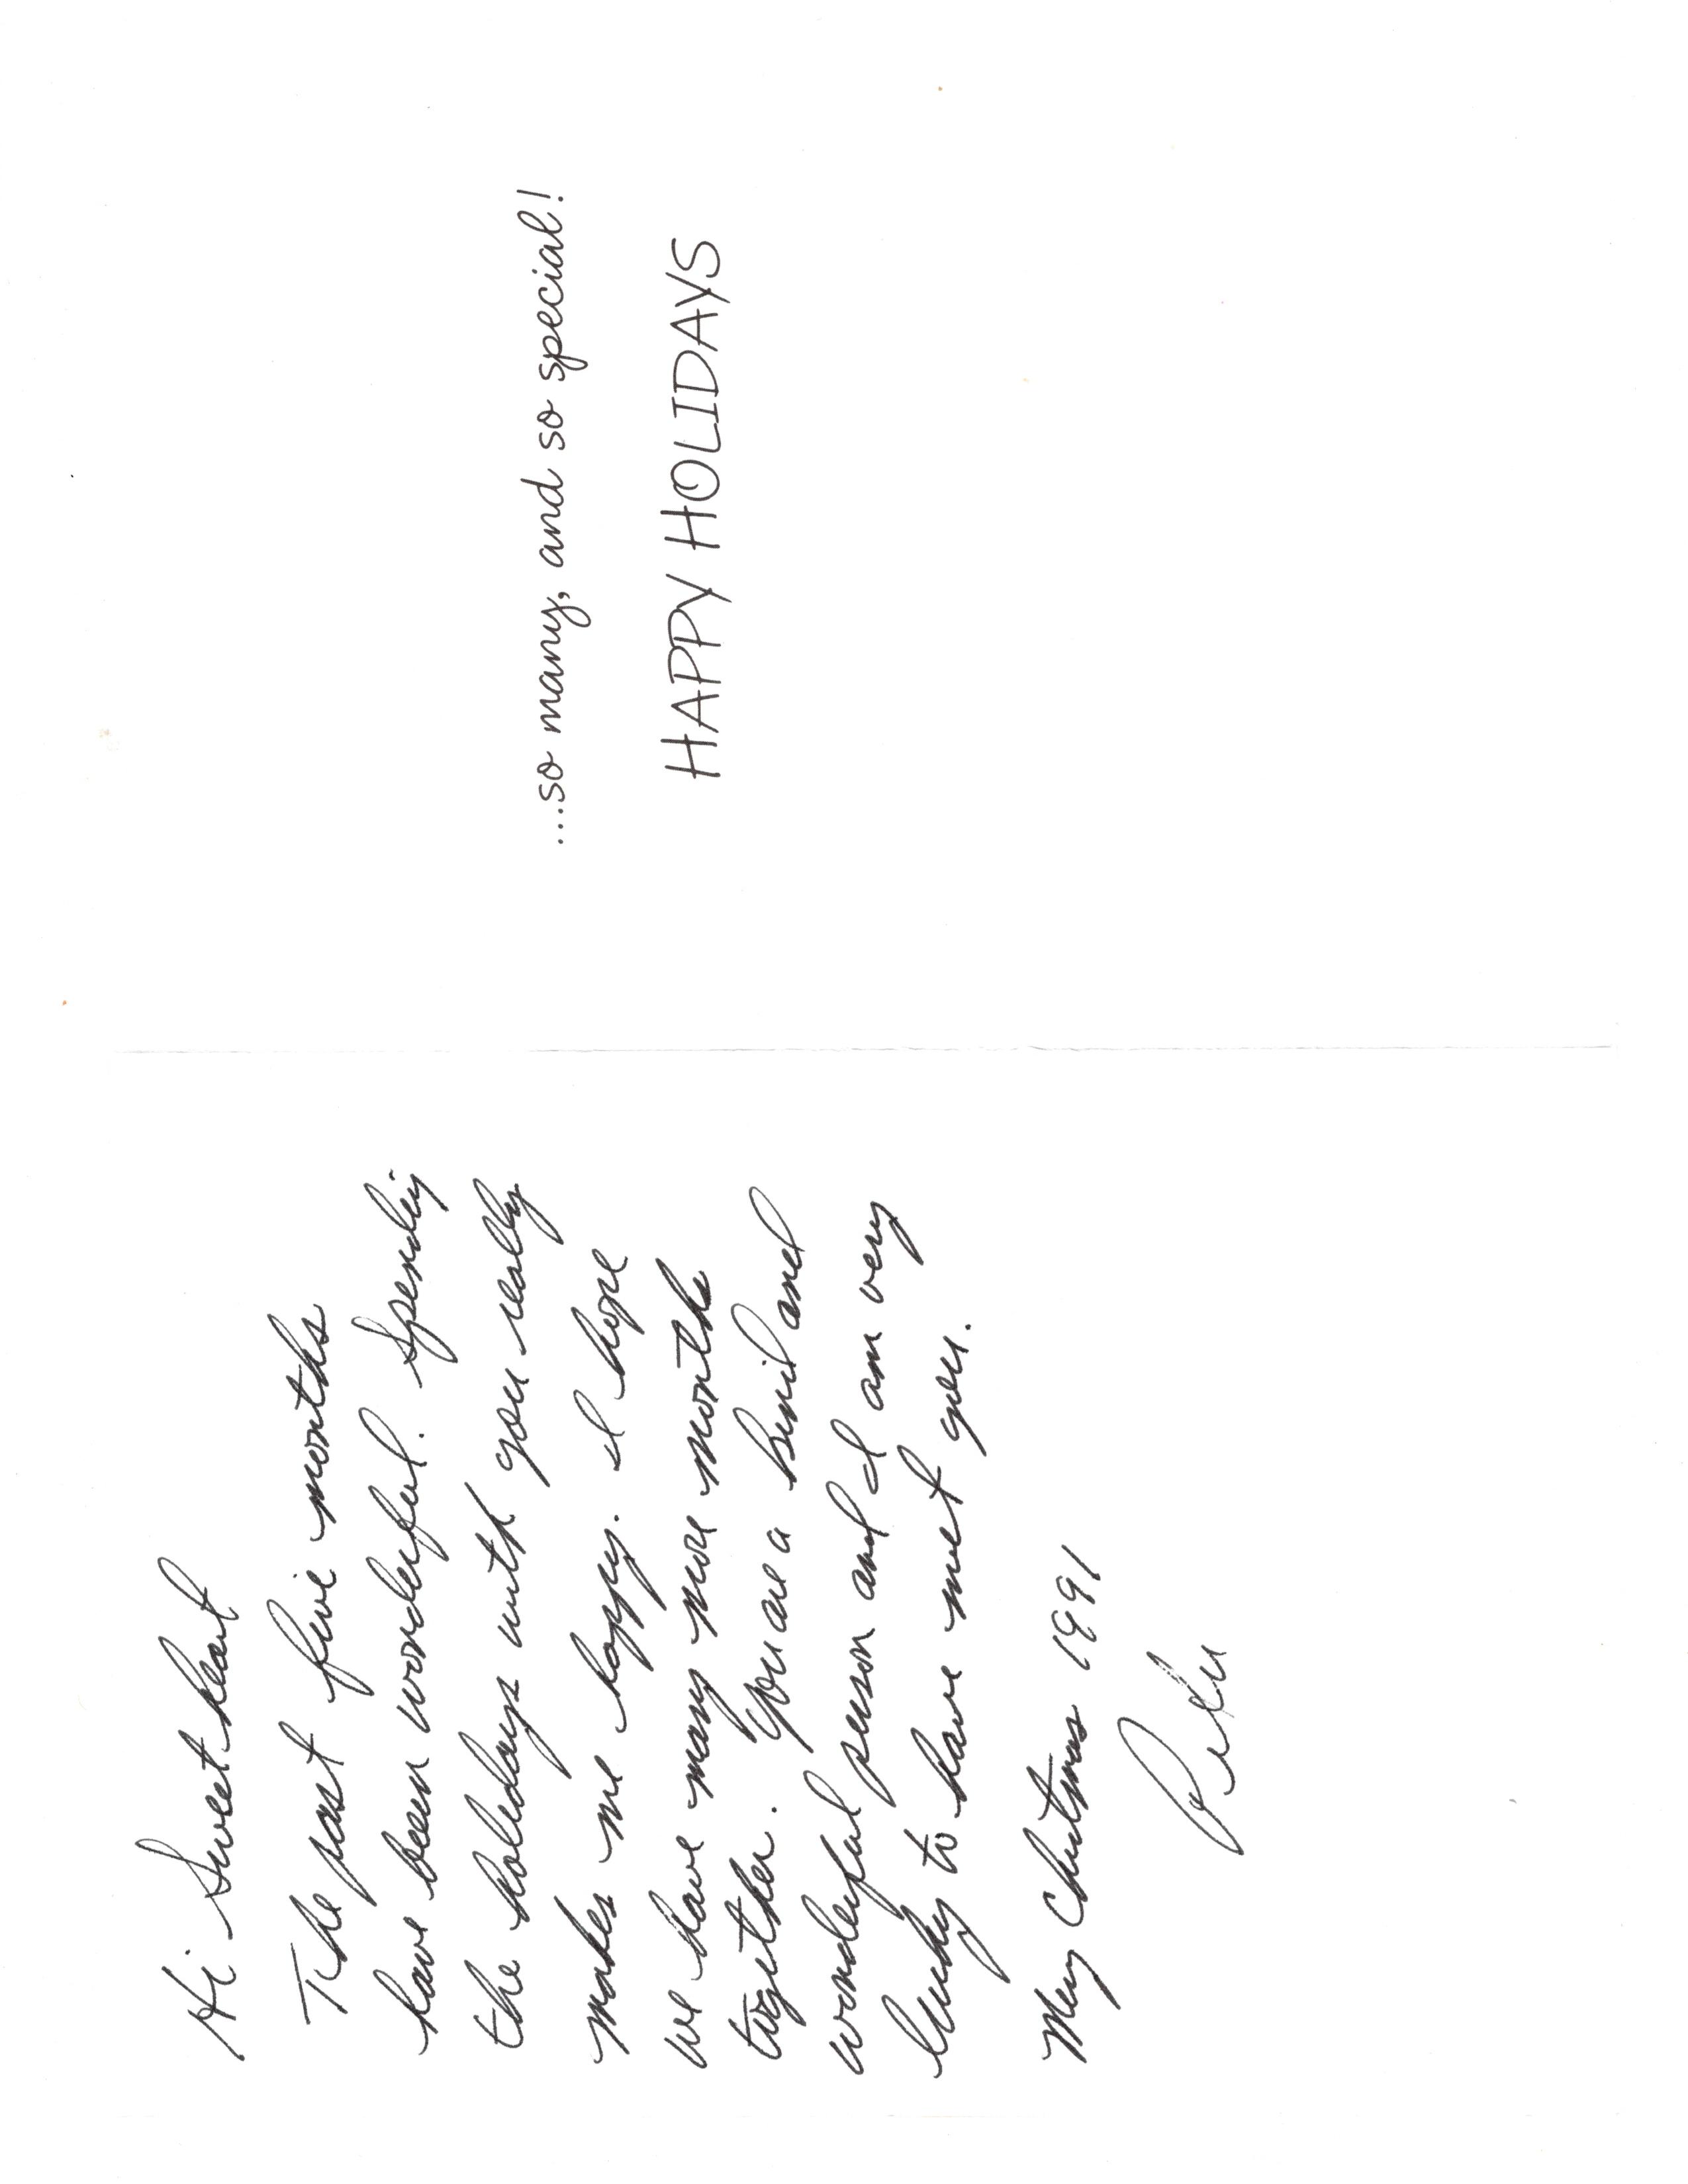 Hi Sweetheart
The past five months
have been wonderful. Spending
the holidays with you really
makes me happy. I hope
we have many more months
together. You are a kind and
wonderful person and I am very
lucky to have met you.
Merry Christmas 1991
...so many, and so special!
HAPPY HOLIDAYS